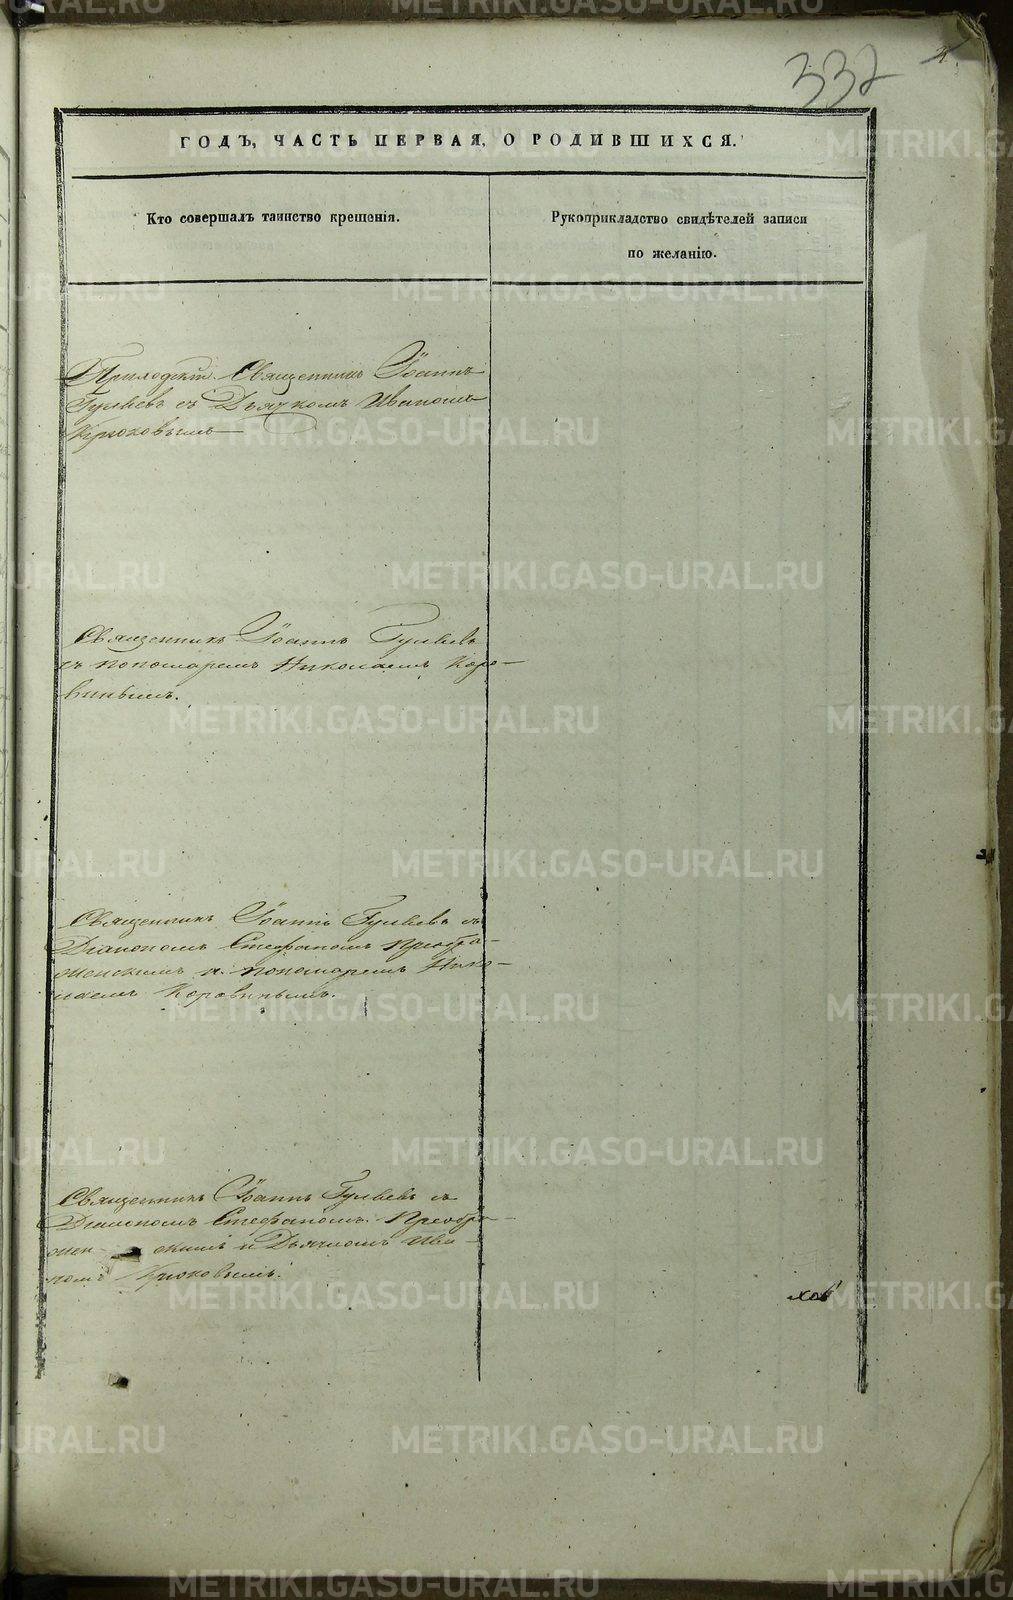 332
ГОДЪ, ЧАСТЬ ПЕРВАЯ, О РОДИВШИХСЯ.
Кто совершалъ таинство крещенія.
Рукоприкладство свидѣтелей записи
по желанію.
Приходскій Священникъ Іоаннъ
Гуляевъ съ Дьячкомъ Иваномъ
Крюковымъ
Священникъ Іоаннъ Гуляевъ
съ пономаремъ Николаемъ Коро-
винымъ.
Священникъ Іоаннъ Гуляевъ съ
Діакономъ Стефаномъ Преобра-
женскимъ и пономаремъ Нико-
лаемъ Коровинымъ.
Священникъ Іоаннъ Гуляевъ съ
Діакономъ Стефаномъ Преобра-
жен- скимъ и Дьячкомъ Ива-
номъ Крюковымъ.
METRIKI.GASO-URAL.RU